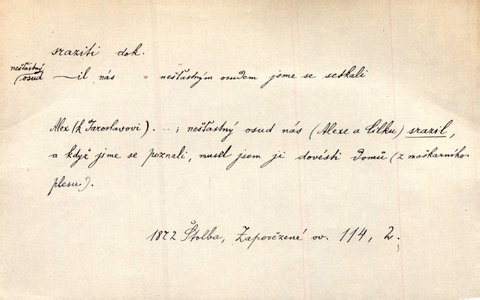 sraziti dok.
nešťastný
(osud —il nás = nešťastným osudem jsme se setkali
Alex (k Jaroslavovi) . . . ; nešťastný osud nás (Alexe a Lilku) srazil,
a když jsme se poznali, musel jsem ji dovésti domů (z maškarního
plesu.).
1872 Štolba, Zapovězené ov. 114, 2.